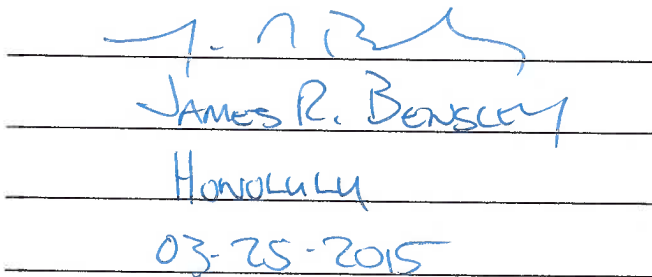 JAMES R. BENSLEY
HONOLULU
03-25-2015